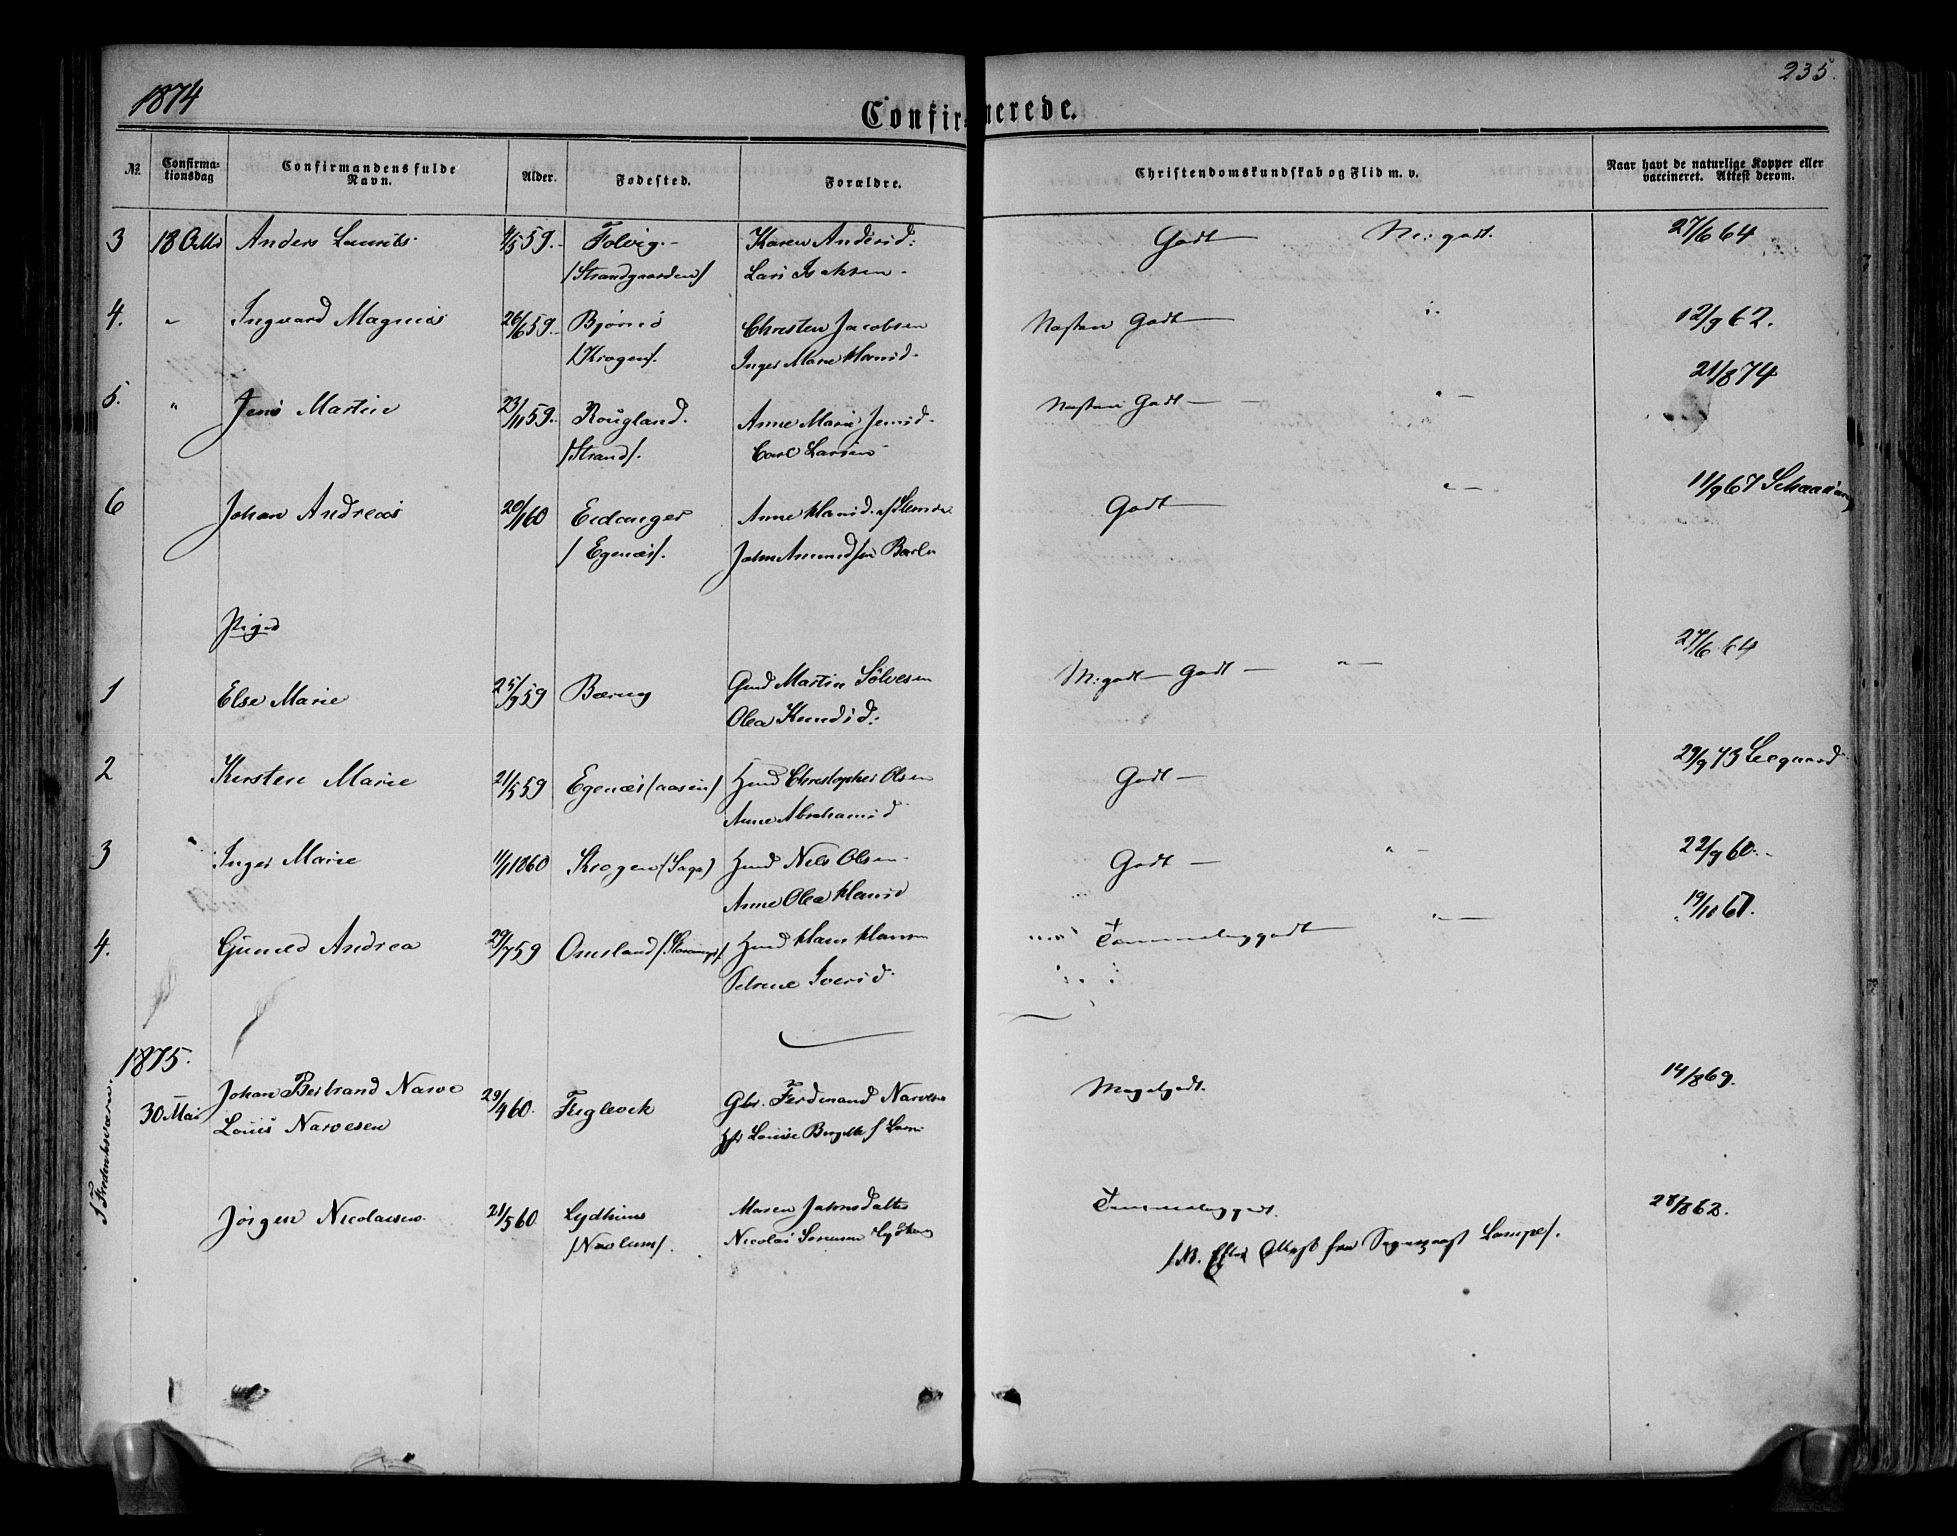 1874
Confirmerede.
235.
No.
Confirma-
tionsdag
Confirmandens fulde
Navn.
Alder.
Fødested.
Forældre.
Christendomskundskab og Flid m. v.
Naar havt de naturlige Kopper eller
vaccineret. Attest derom.
3 18 Octbr Anders Laurits 4/5 59. Tolvig. Karen Andersd: Godt M: godt. 27/6 64
/Strandgaarden/ Lars Isaksen
4. " Ingvard Magnus 26/6 59. Bjørnø Christen Jacobsen Næsten Godt 12/9 62.
/Krogen/. Inger Marie Hansd.
21/8 74
5. " Jens Martin 23/11 59. Rougland. Anne Marie Jensd. Næsten Godt "
/Strand/. Carl Larsen
6 Johan Andreas 20/1 60 Eidanger Anne Hansd. Godt " 11/9 67
/Egenæs/. John Amundsen
Piger
1 Else Marie 25/9 59 Gmd Martin Sølvesen M: godt - Godt " 27/6 64
Olea Knudsd:
2 Kirsten Marie 21/5 59 Egenæs /aasen/ Hmd Christopher Olsen Godt 29/9 73 Leegaard
Anne Abrahamsd
3 Inger Marie 11/1 1860 Krogen (Saga) Hmd Nils Olsen Godt " 22/9 60.
Anne Olea Hansd
4. Gunild Andrea 29/7 59 Omsland Hmd Hans Hansen Temmelig godt " 19/10 67.
Iversd.
1875.
I Frederiksværn.
30 Mai Johan Bertrand Narve 29/4 60. Fuglevik Ferdinand Narvesen Meget godt. 14/8 69.
Louis Narvesen Louise
Jørgen Nicolaisen 21/5 60 Lydhuus Maren Jahnsdatter Temmelig godt. 28/8 62.
/Nævlum/. Nicolai
/NB. Efter Attest fra Sognepræst Lampe/.